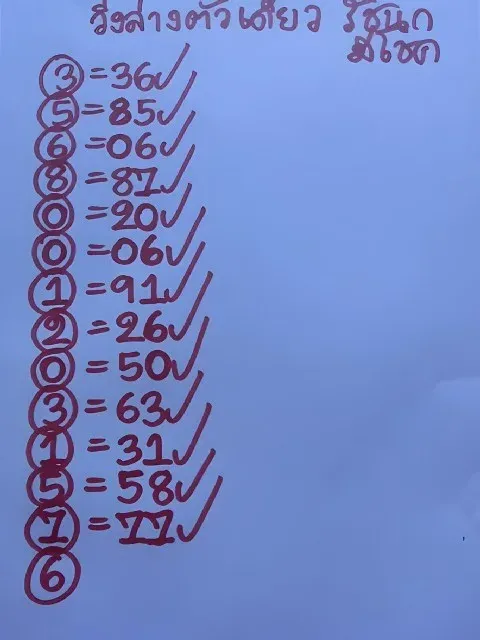 วิ่งล่างตัวเดียว รัชนก
มีโชค
3 = 36✓
5 = 85✓
6 = 06✓
8 = 87✓
0 = 20✓
0 = 06✓
1 = 91✓
2 = 26✓
0 = 50✓
3 = 63✓
1 = 31✓
5 = 58✓
7 = 77✓
6